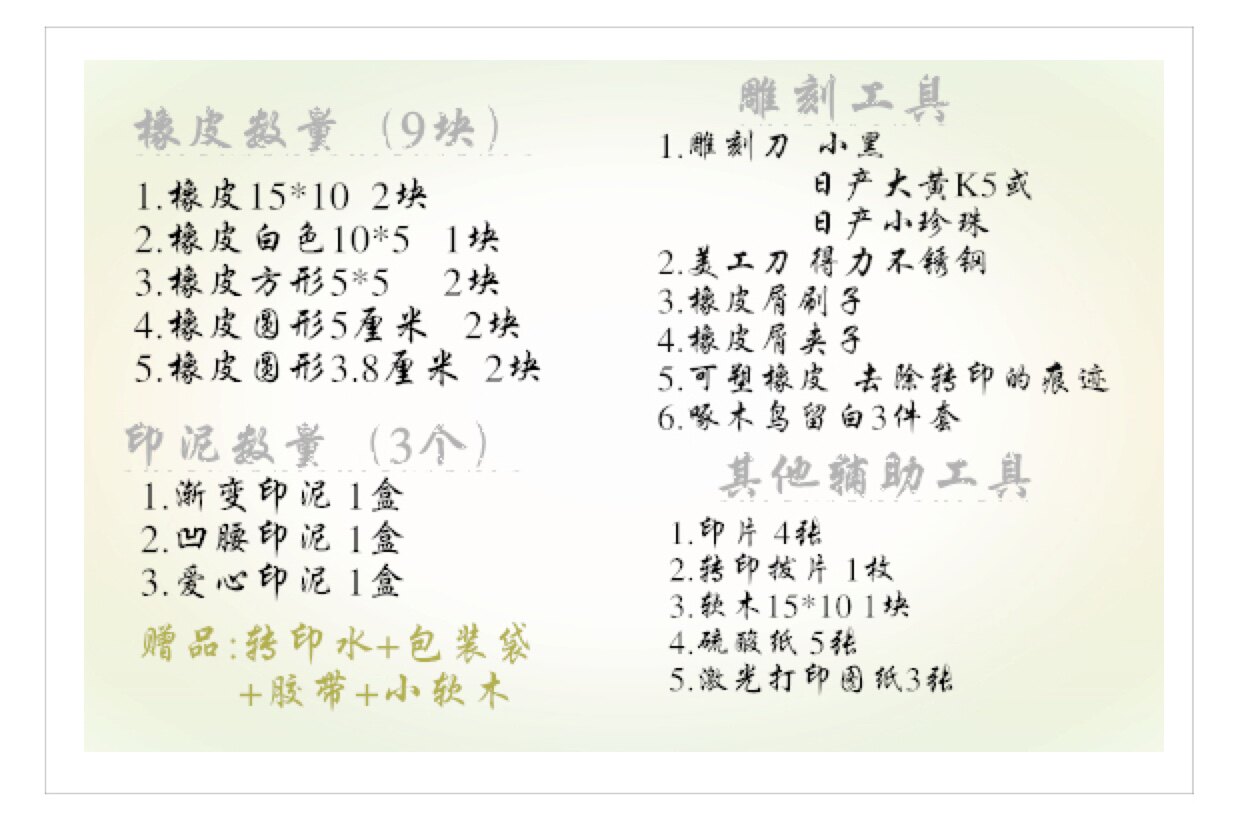 橡皮数量（9块）
1.橡皮15*10 2块
2.橡皮白色10*5 1块
3.橡皮方形5*5 2块
4.橡皮圆形5厘米 2块
5.橡皮圆形3.8厘米 2块
印泥数量（3个）
1.渐变印泥 1盒
2.凹腰印泥 1盒
3.爱心印泥 1盒
赠品:转印水+包装袋
+胶带+小软木
雕刻工具
1.雕刻刀 小黑
日产大黄K5或
日产小珍珠
2.美工刀 得力不锈钢
3.橡皮屑刷子
4.橡皮屑夹子
5.可塑橡皮 去除转印的痕迹
6.啄木鸟留白3件套
其他辅助工具
1.印片 4张
2.转印拨片 1枚
3.软木15*10 1块
4.硫酸纸 5张
5.激光打印图纸3张